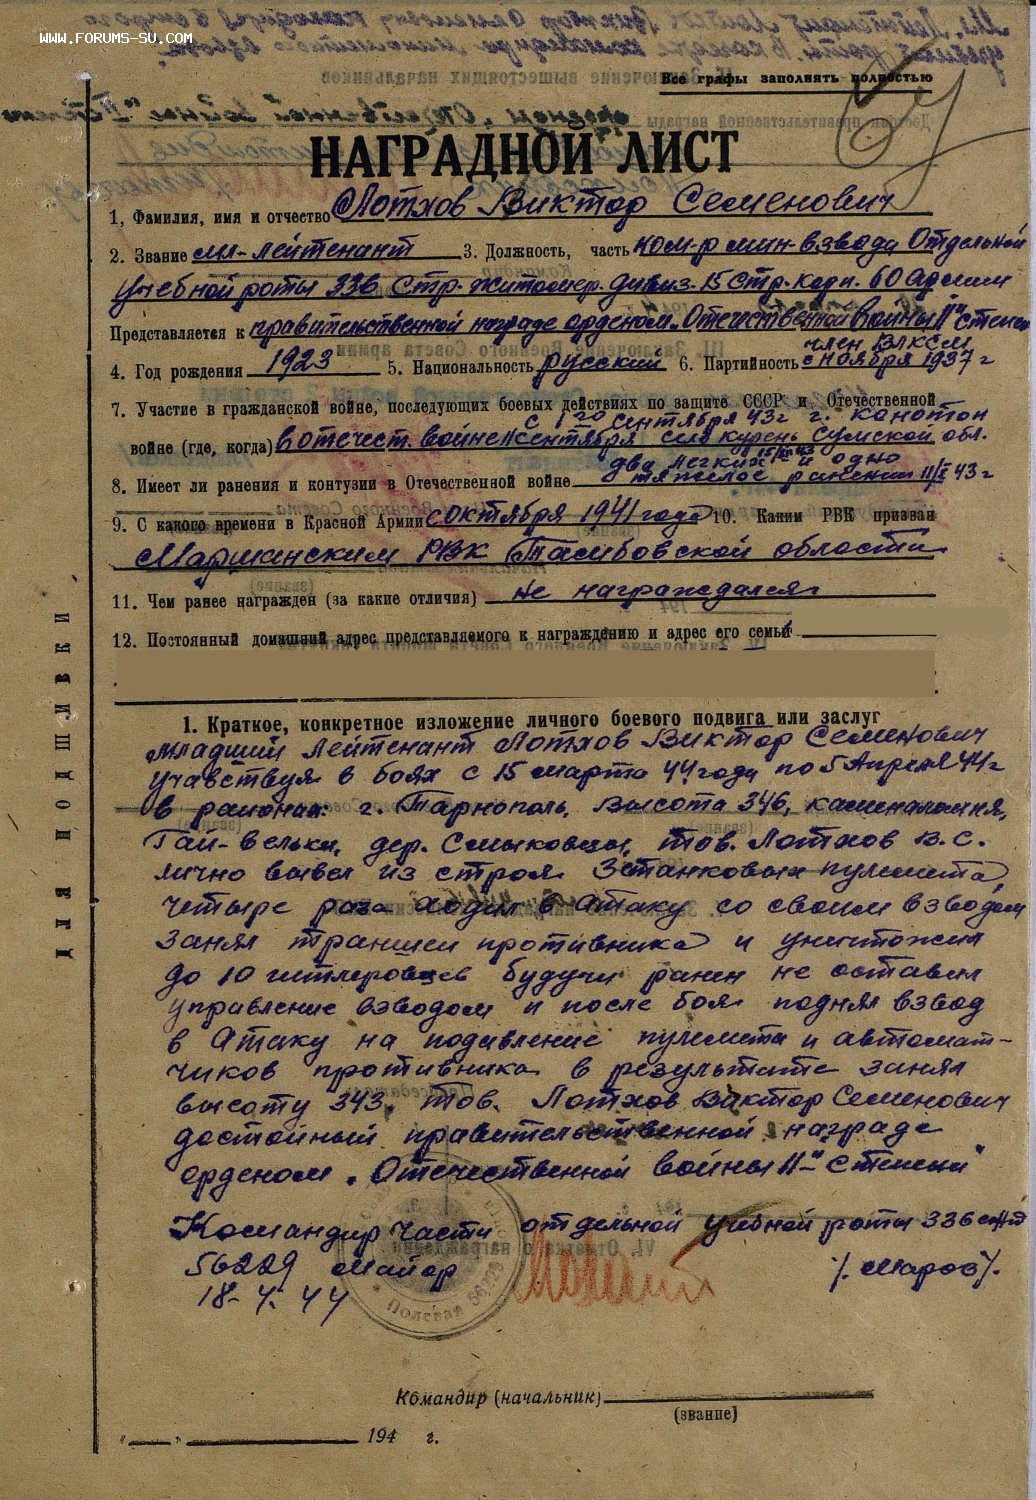 www.forums-su.com
Все графы заполнять полностью
НАГРАДНОЙ ЛИСТ
1, Фамилия, имя и отчество Лотхов Виктор Семенович
2. Звание мл-лейтенант 3. Должность, часть ком-р мин-взвода Отдельной
учебной роты 336 Стр. Житомер. дивиз. 15 Стр. корп. 60 Армии
Представляется к правительственной награде орденом. Отечественной войны II" степен
член ВЛКСМ
4. Год рождения 1923 5. Национальность русский 6. Партийность с ноября 1937 г
7. Участие в гражданской войне, последующих боевых действиях по защите СССР и Отечественной
с 1го сентября 43 г г. канотоп
войне (где, когда) в отечест. войне сентября село курень Сумской обл.
два легких и одно
8. Имеет ли ранения и контузии в Отечественной войне тяжелое ранение 43 г
9. С какого времени в Красной Армии с октября 1941 года 10. Каким РВК призван
Маршанским РВК Тамбовской области
11. Чем ранее награжден (за какие отличия) не награждался
12. Постоянный домашний адрес представляемого к награждению и адрес его семьи
1. Краткое, конкретное изложение личного боевого подвига или заслуг
Младший Лейтенант Лотхов Виктор Семенович
учавствуя в боях с 15 марта 44 году по 5 Апреля 44 г
в районах: г. Тарнополь, Высота 346,
Гаи-вельки, дер. Смыковцы, тов. Лотхов В.С.
лично вывел из строя 3 станковых пулемета,
четыре раза ходил в атаку со своим взводом
занял траншеи противника и уничтожил
до 10 гитлеровцев будучи ранен не оставил
управление взводом и после боя поднял взвод
в Атаку на подавление пулемета и автомат-
чиков противника в результате занял
высоту 343. тов. Лотхов Виктор Семенович
достойный правительственной награде
орденом „Отечественной войны II" степени"
Командир части отдельной учебной роты 336
56229 майор /. маров /.
18-4.44
Полевая
Командир (начальник)
(звание)
" " 194 г.
ДЛЯ ПОДШИВКИ